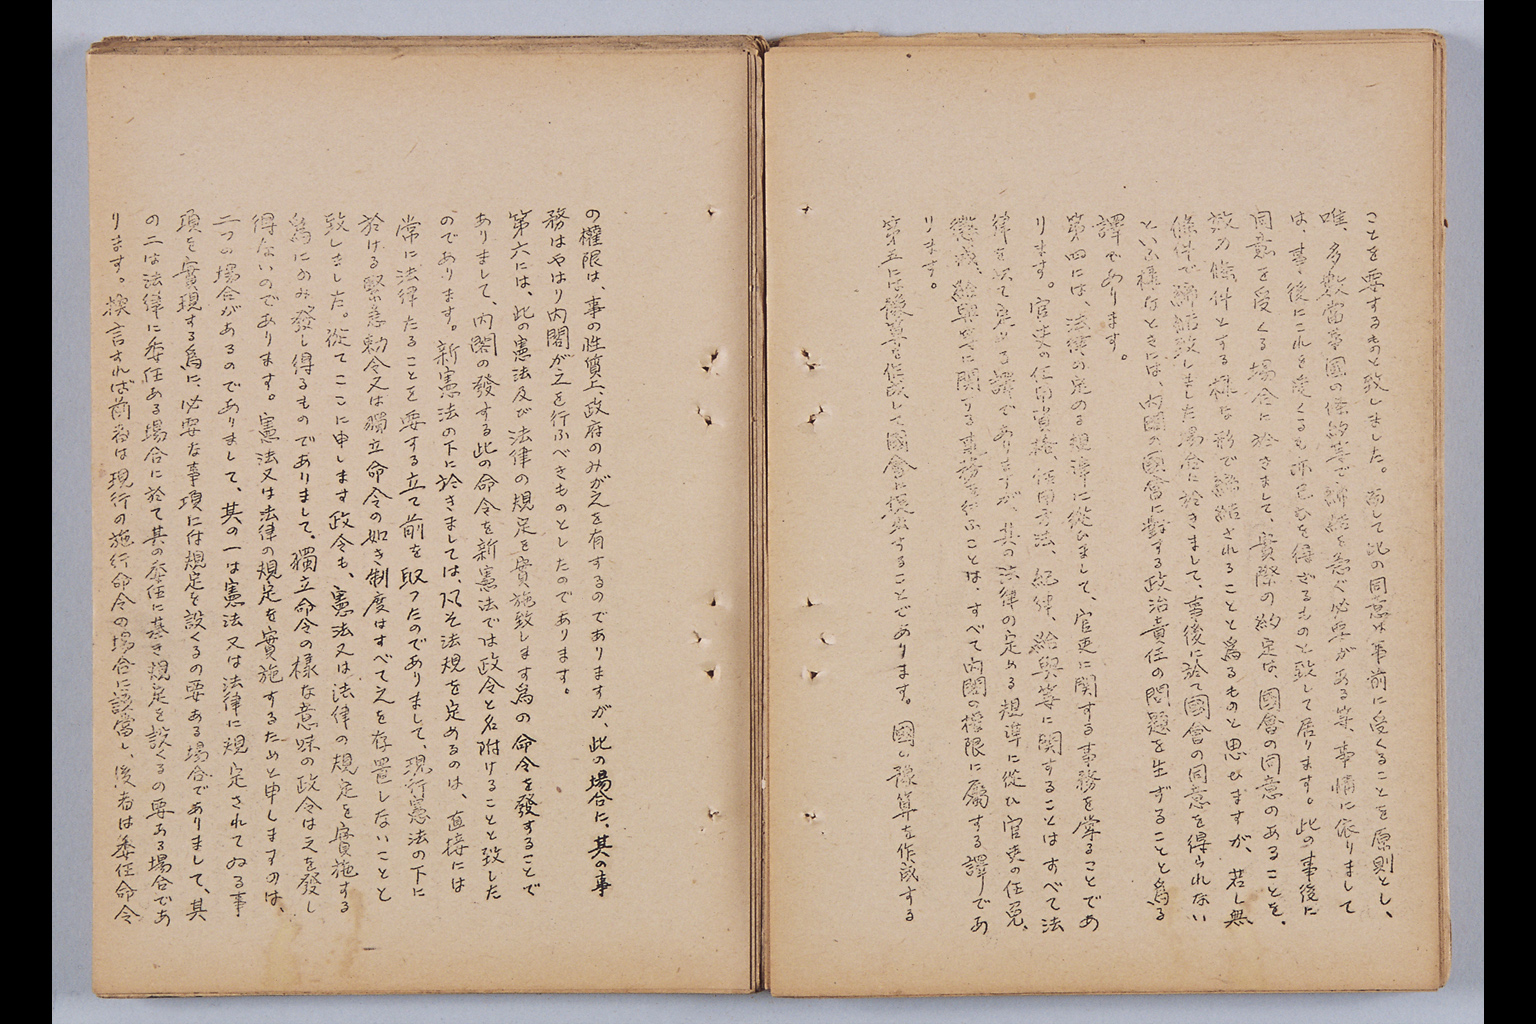 ことを要するものと致しました。而して此の同意は事前に受くることを原則とし、
唯、多數當事國の條約等で締結を急ぐ必要がある等、事情に依りまして
は、事後にこれを受くるも亦已むを得ざるものと致して居ります。此の事後に
同意を受くる場合に於きまして、實際の約定は、國會の同意のあることを、
效力條件とする樣な形で締結されることと爲るものと思ひますが、若し無
條件で締結致しました場合に於きまして、事後に於て國會の同意を得られない
といふ樣なときには、內閣の國會に對する政治責任の問題を生ずることと爲る
譯であります。
第四には、法律の定める規準に從ひまして、官吏に関する事務を掌ることであ
ります。官吏の任用資格、任用方法、紀律、給與等に関することはすべて法
律を以て定める譯でありますが、其の法律の定める規準に從ひ官吏の任免、
懲戒、給與等に関する事務を行ふことは、すべて內閣の權限に屬する譯であ
ります。
第五には豫算を作成して國會に提出することであります。國の豫算を作成する
の權限は、事の性質上、政府のみが之を有するのでありますが、此の場合に、其の事
務はやはり內閣が之を行ふべきものとしたのであります。
第六には、此の憲法及び法律の規定を實施致します爲の命令を發することで
ありまして、內閣の發する此の命令を新憲法では政令と名附けることと致した
のであります。新憲法の下に於きましては、凡そ法規を定めるのは、直接には
常に法律たることを要する立て前を取つたのでありまして、現行憲法の下に
於ける緊急勅令又は獨立命令の如き制度はすべて之を存置しないことと
致しました。從てここに申します政令も、憲法又は法律の規定を實施する
爲にのみ發し得るものでありまして、獨立命令の樣な意味の政令は之を發し
得ないのであります。憲法又は法律の規定を實施するためと申しますのは、
二つの場合があるのでありまして、其の一は憲法又は法律に規定されてゐる事
項を實現する爲に、必要な事項に付規定を設くるの要ある場合でありまして、其
の二は法律に委任ある場合に於て其の委任に基き規定を設くるの要ある場合であ
ります。換言すれば前者は現行の施行命令の場合に該當し、後者は委任命令